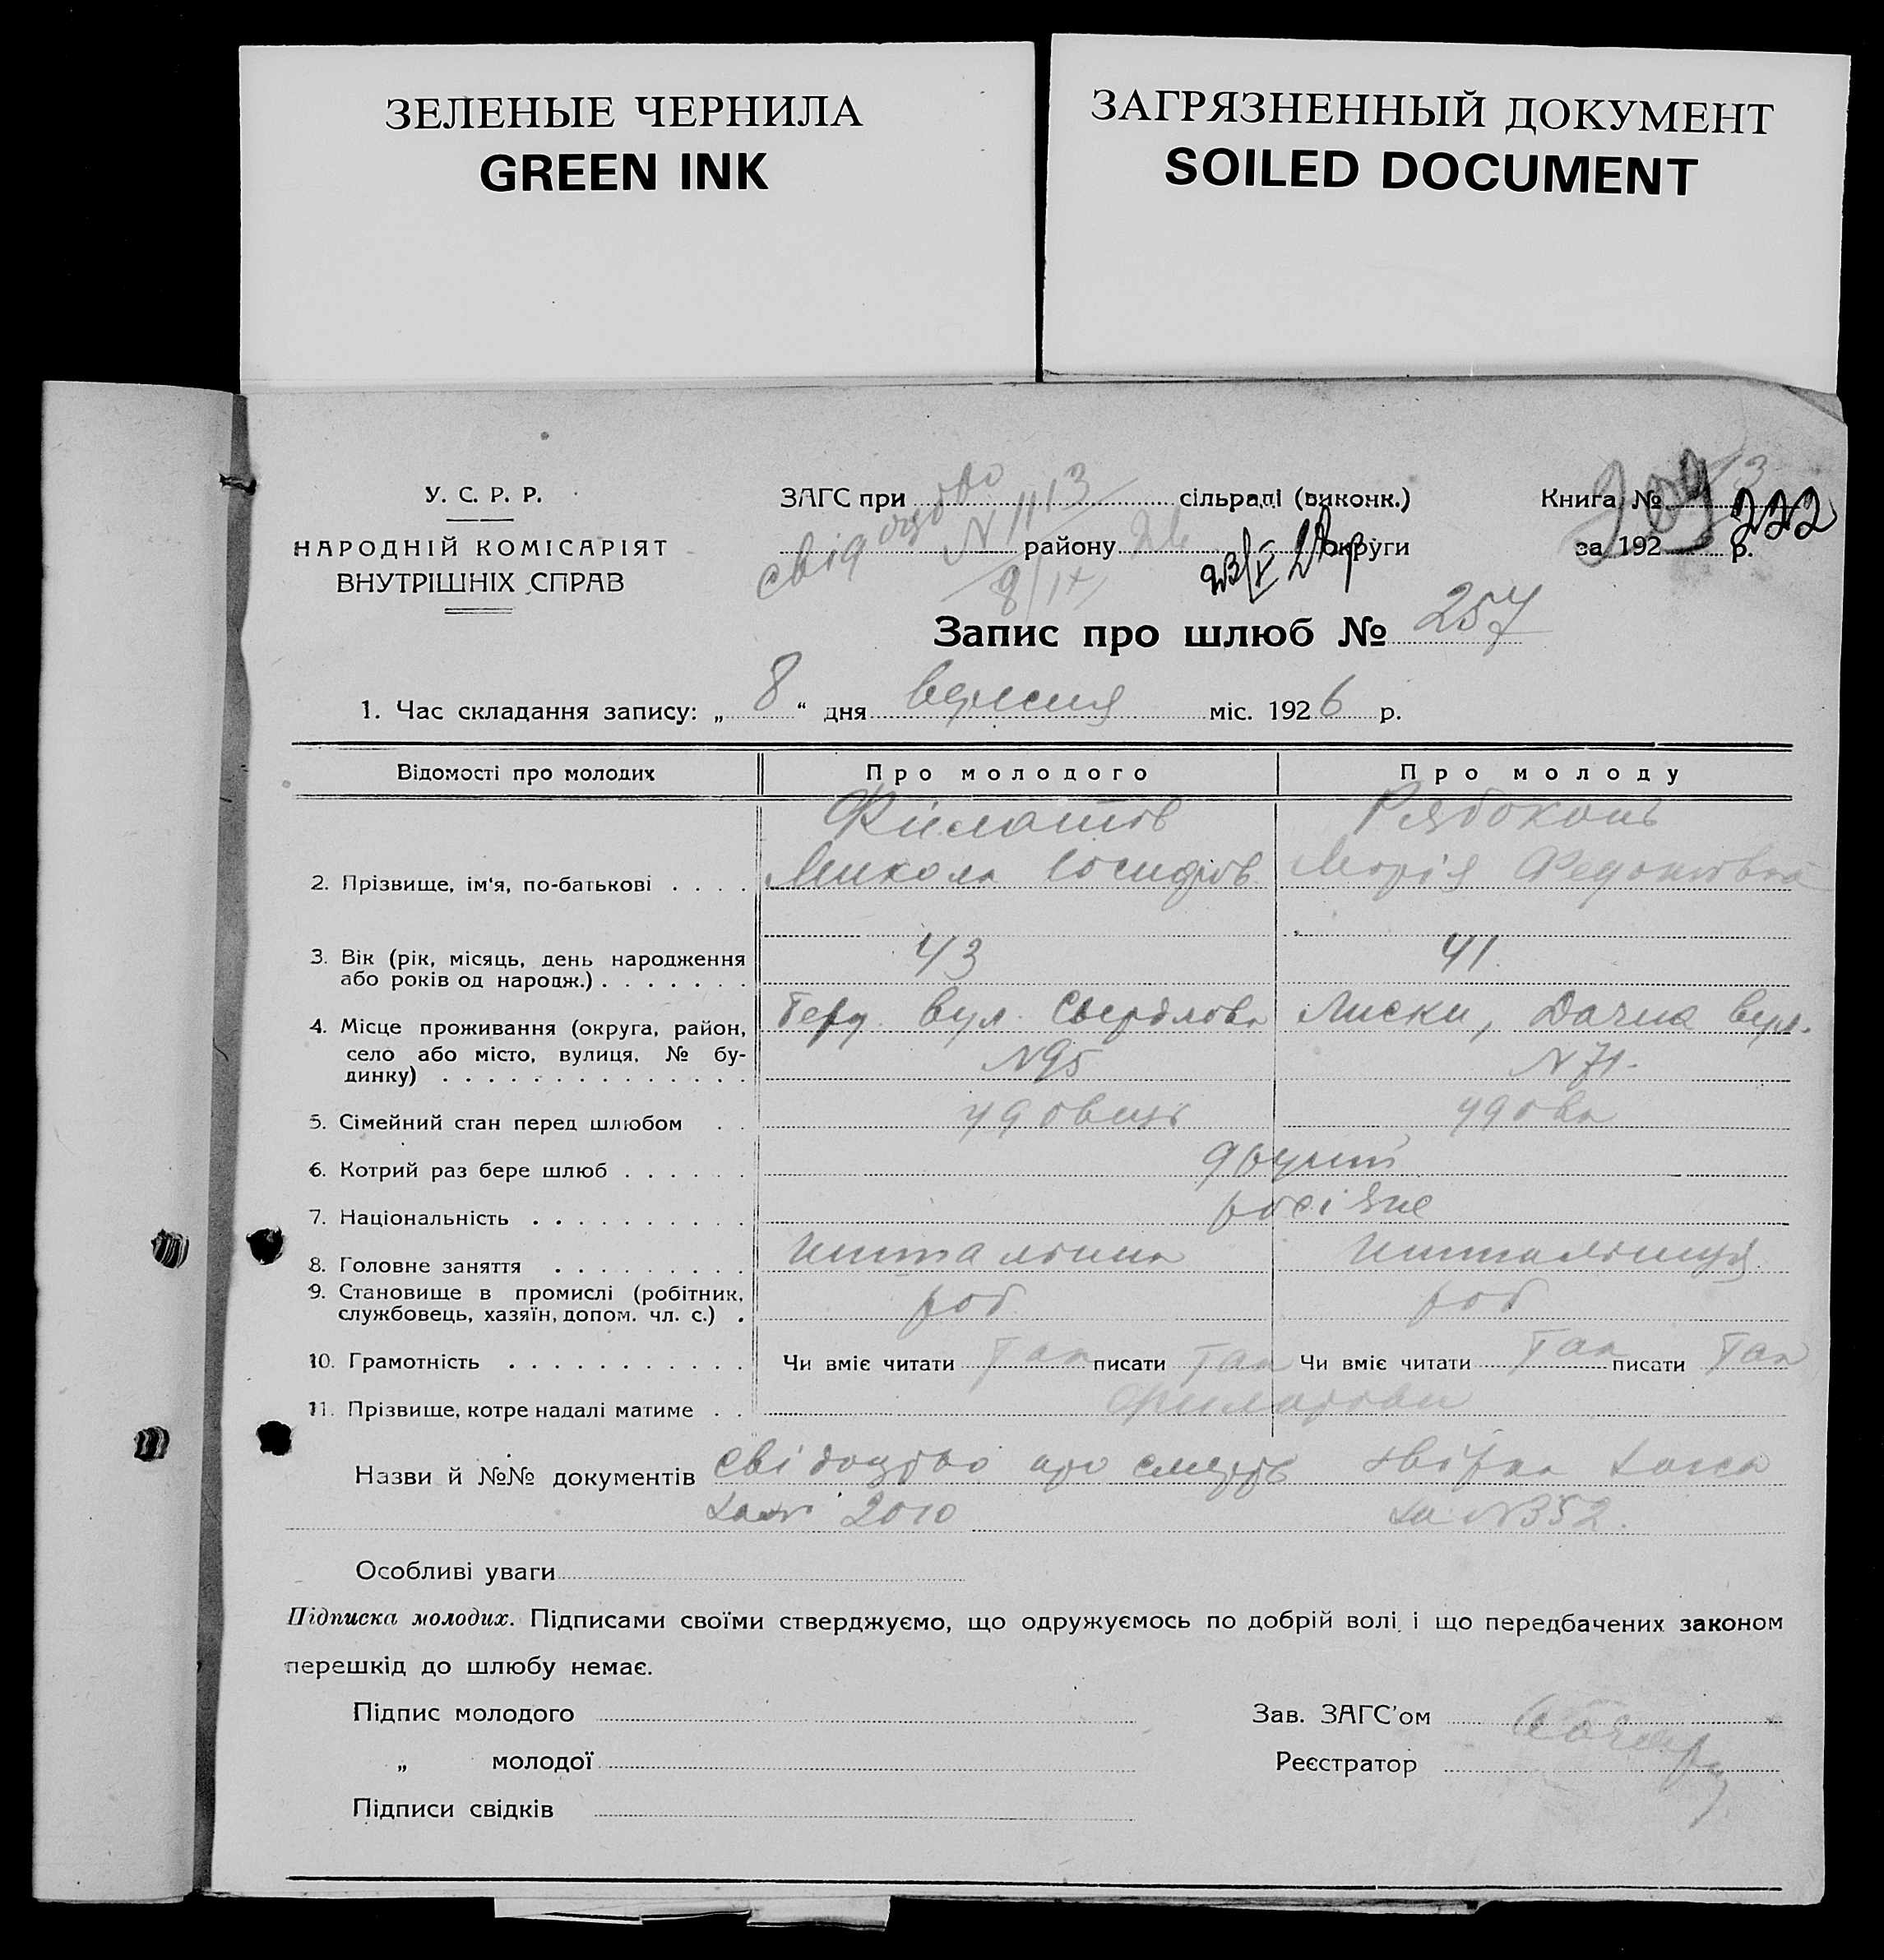 ЗЕЛЕНЫЕ ЧЕРНИЛА
GREEN INK
ЗАГРЯЗНЕННЫЙ ДОКУМЕНТ
SOILED DOCUMENT
У. С. Р. Р.
НАРОДНІЙ КОМІСАРІЯТ
ВНУТРІШНІХ СПРАВ
ЗАГС при сільраді (виконк.)
району округи
свідоцтво N 1113
8/IX
Книга №
за 192 р.
209
222
Запис про шлюб № 257
1. Час складання запису: „ 8 “ дня вересня міс. 1926 р.
Відомості про молодих Про молодого Про молоду
Філатов Рябоконь
2. Прізвище, ім'я, по-батькові . . . . Микола Марія
3. Вік (рік, місяць, день народження 43 41
або років од народж.) . . . . . . .
4. Місце проживання (округа, район, вул. Свердлова Лиски, Дачна вул.
село або місто, вулиця, № бу- N 95 N 71
динку) . . . . . . . . . . . . . .
5. Сімейний стан перед шлюбом . . удовець удова
6. Котрий раз бере шлюб . . . . . .
7. Національність . . . . . . . . . . росіяне
8. Головне заняття . . . . . . . . .
9. Становище в промислі (робітник, роб роб
службовець, хазяїн, допом. чл. с.) .
10. Грамотність . . . . . . . . . . . Чи вміє читати так писати так Чи вміє читати так писати так
11. Прізвище, котре надалі матиме . . Филатови
Назви й №№ документів свідоцтво про смерть
2010 за N 352.
Особливі уваги
Підписка молодих. Підписами своїми стверджуємо, що одружуємось по добрій волі і що передбачених законом
перешкід до шлюбу немає.
Підпис молодого
„ молодої
Підписи свідків
Зав. ЗАГС'ом
Реєстратор